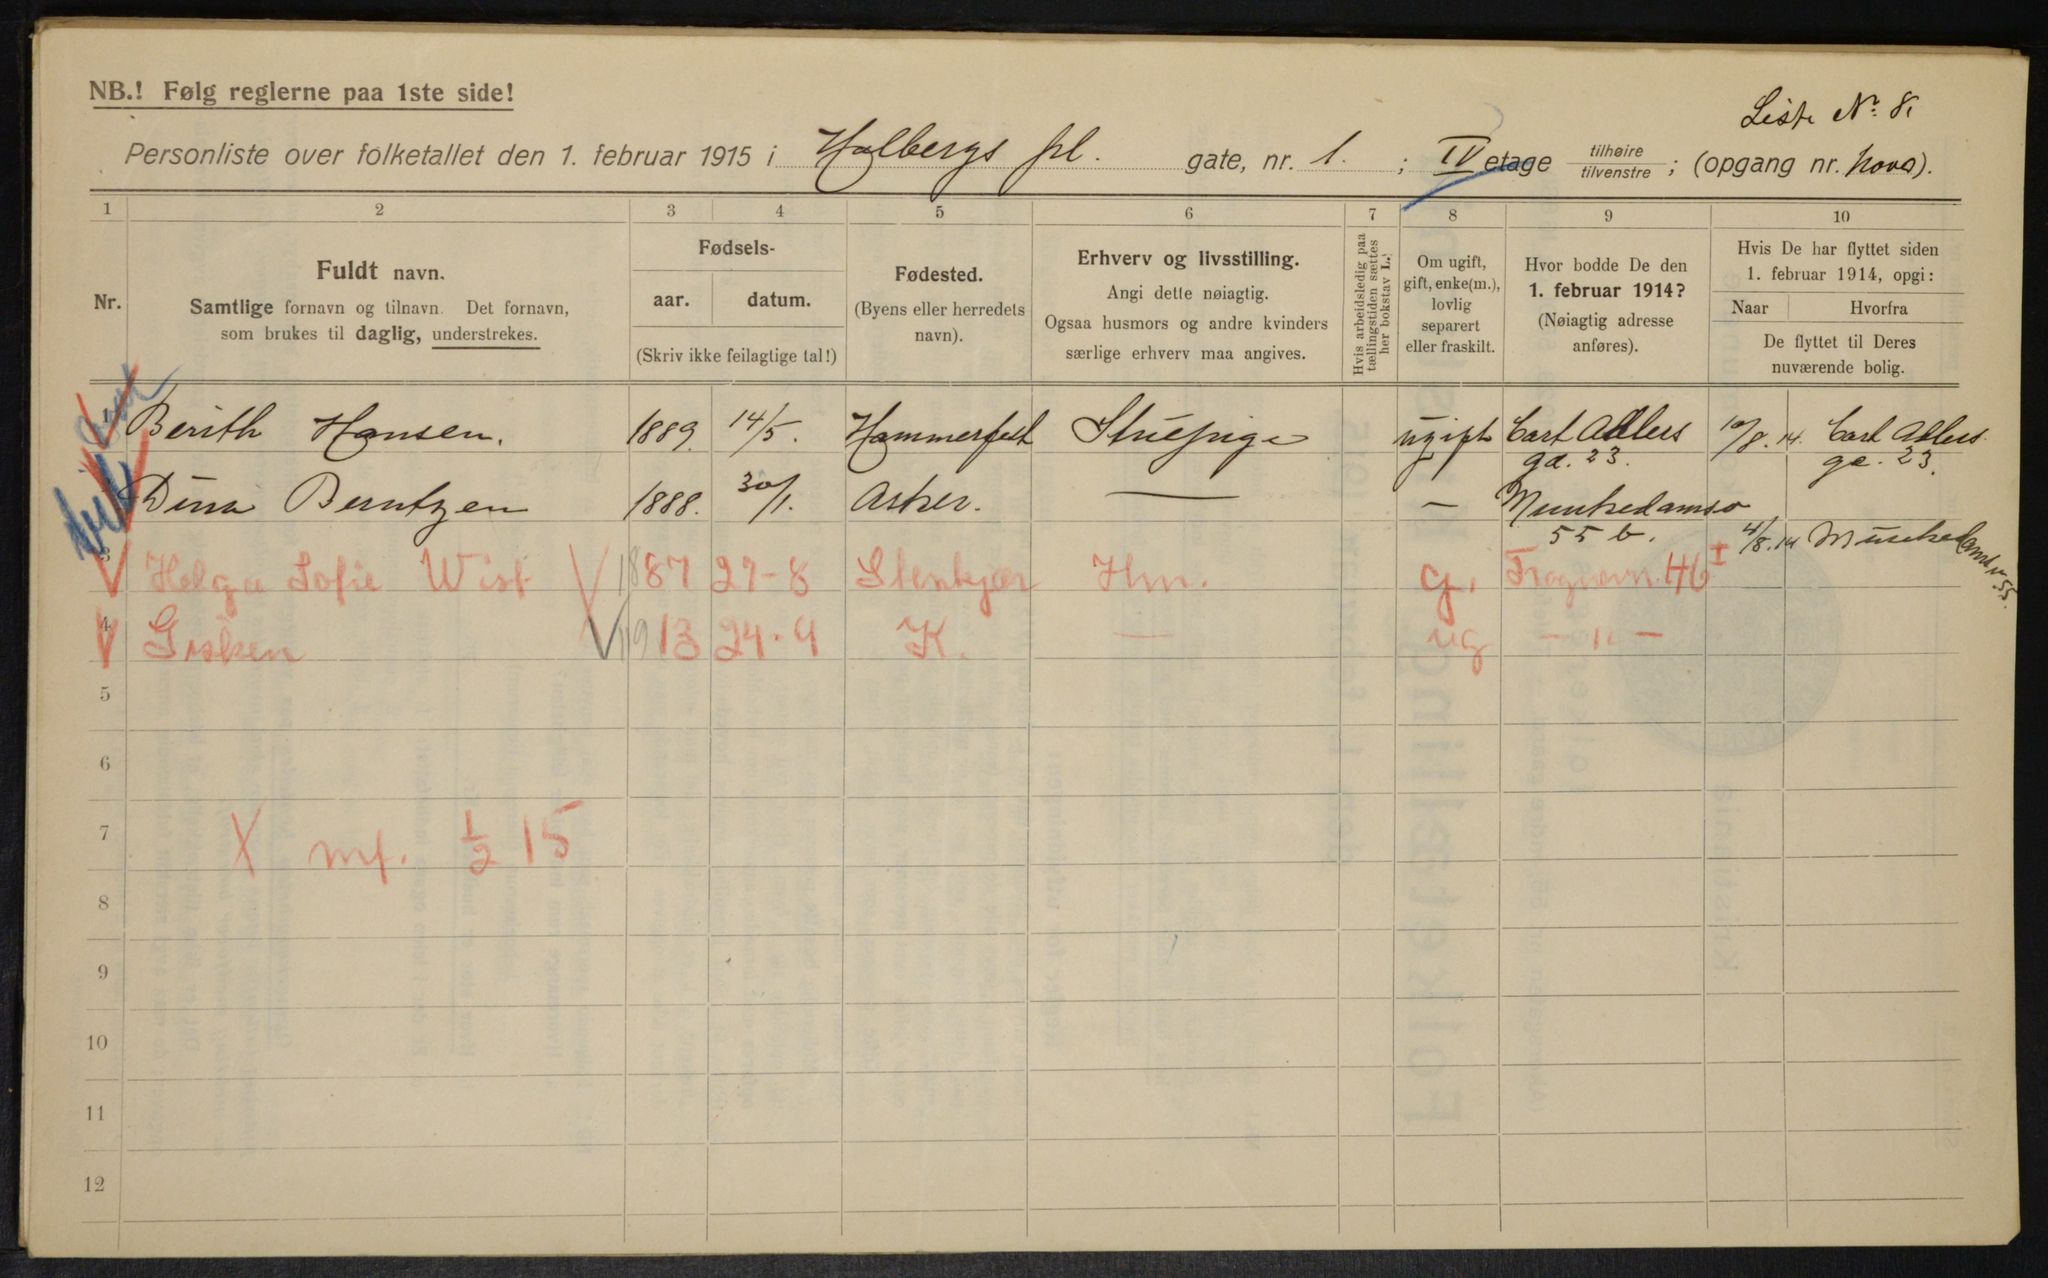 NB.! Følg reglerne paa 1ste side!
Liste No. 8.
Personliste over folketallet den 1. februar 1915 i Holbergs pl. gate, nr. 1. ; IV etage tilhøire tilvenstre ; (opgang nr. hoved).
1 2 3 4 5 6 7 8 9 10
Nr.
Fuldt navn.
Samtlige fornavn og tilnavn. Det fornavn,
som brukes til daglig, understrekes.
Fødsels-
aar. datum.
(Skriv ikke feilagtige tal!)
Fødested.
(Byens eller herredets
navn).
Erhverv og livsstilling.
Angi dette nøiagtig.
Ogsaa husmors og andre kvinders
særlige erhverv maa angives.
Hvis arbeidsledig paa
tællingstiden sættes
her bokstav L.)
Om ugift,
gift, enke(m.),
lovlig
separert
eller fraskilt.
Hvor bodde De den
1. februar 1914?
(Nøiagtig adresse
anføres).
Hvis De har flyttet siden
1. februar 1914, opgi:
Naar Hvorfra
De flyttet til Deres
nuværende bolig.
1 Berith Hansen. 1889. 14/5. Hammerfest Stuepige ugift Cart Adlers 10/8. 14. Cart Adlers
gd. 23. ge. 23.
Dina Berntzen 1888. 30/1. Asker. — — Munkedamsv
55 b. 4/8. 14 Munkedamsv 55.
3 Helga Sofie Wist 1887 27-8 Stenkjær Hm. g. Frognerv. 46 I
4 Gisken 1913 24-9 K. — ug — " —
5
6
7 X mf. 1/2 15
8
9
10
11
12